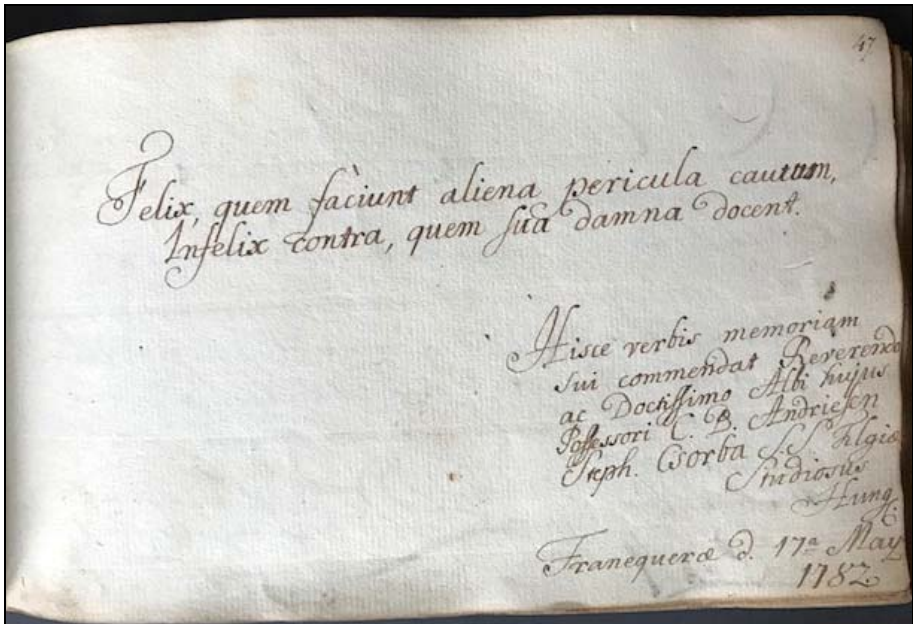 47
Felix, quem faciunt aliena pericula cautum,
Infelix contra, quem sua damna docent.
Hisce verbis memoriam
sui commendat Reverendo
ac Doctissimo Albi hujus
Possessori C. B. Andriesen
Steph. Csorba S.S. Thlgiæ
Studiosus
Hung:
Franequeræ d. 17a May
1782